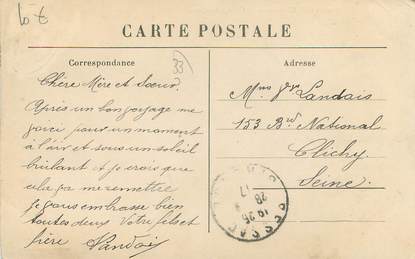 CARTE POSTALE
Correspondance
Adresse
33
Chère Mère et Soeur.
Après un bon voyage me
pour un moment
à l'air et sous un soleil
brûlant et je crois que
cela va me remettre
je vous embrasse bien
toutes deux Votre fils et
frère Landais
Mme Vve Landais
153 Bd National
Clichy
Seine
PESSAC
19 25
28
17